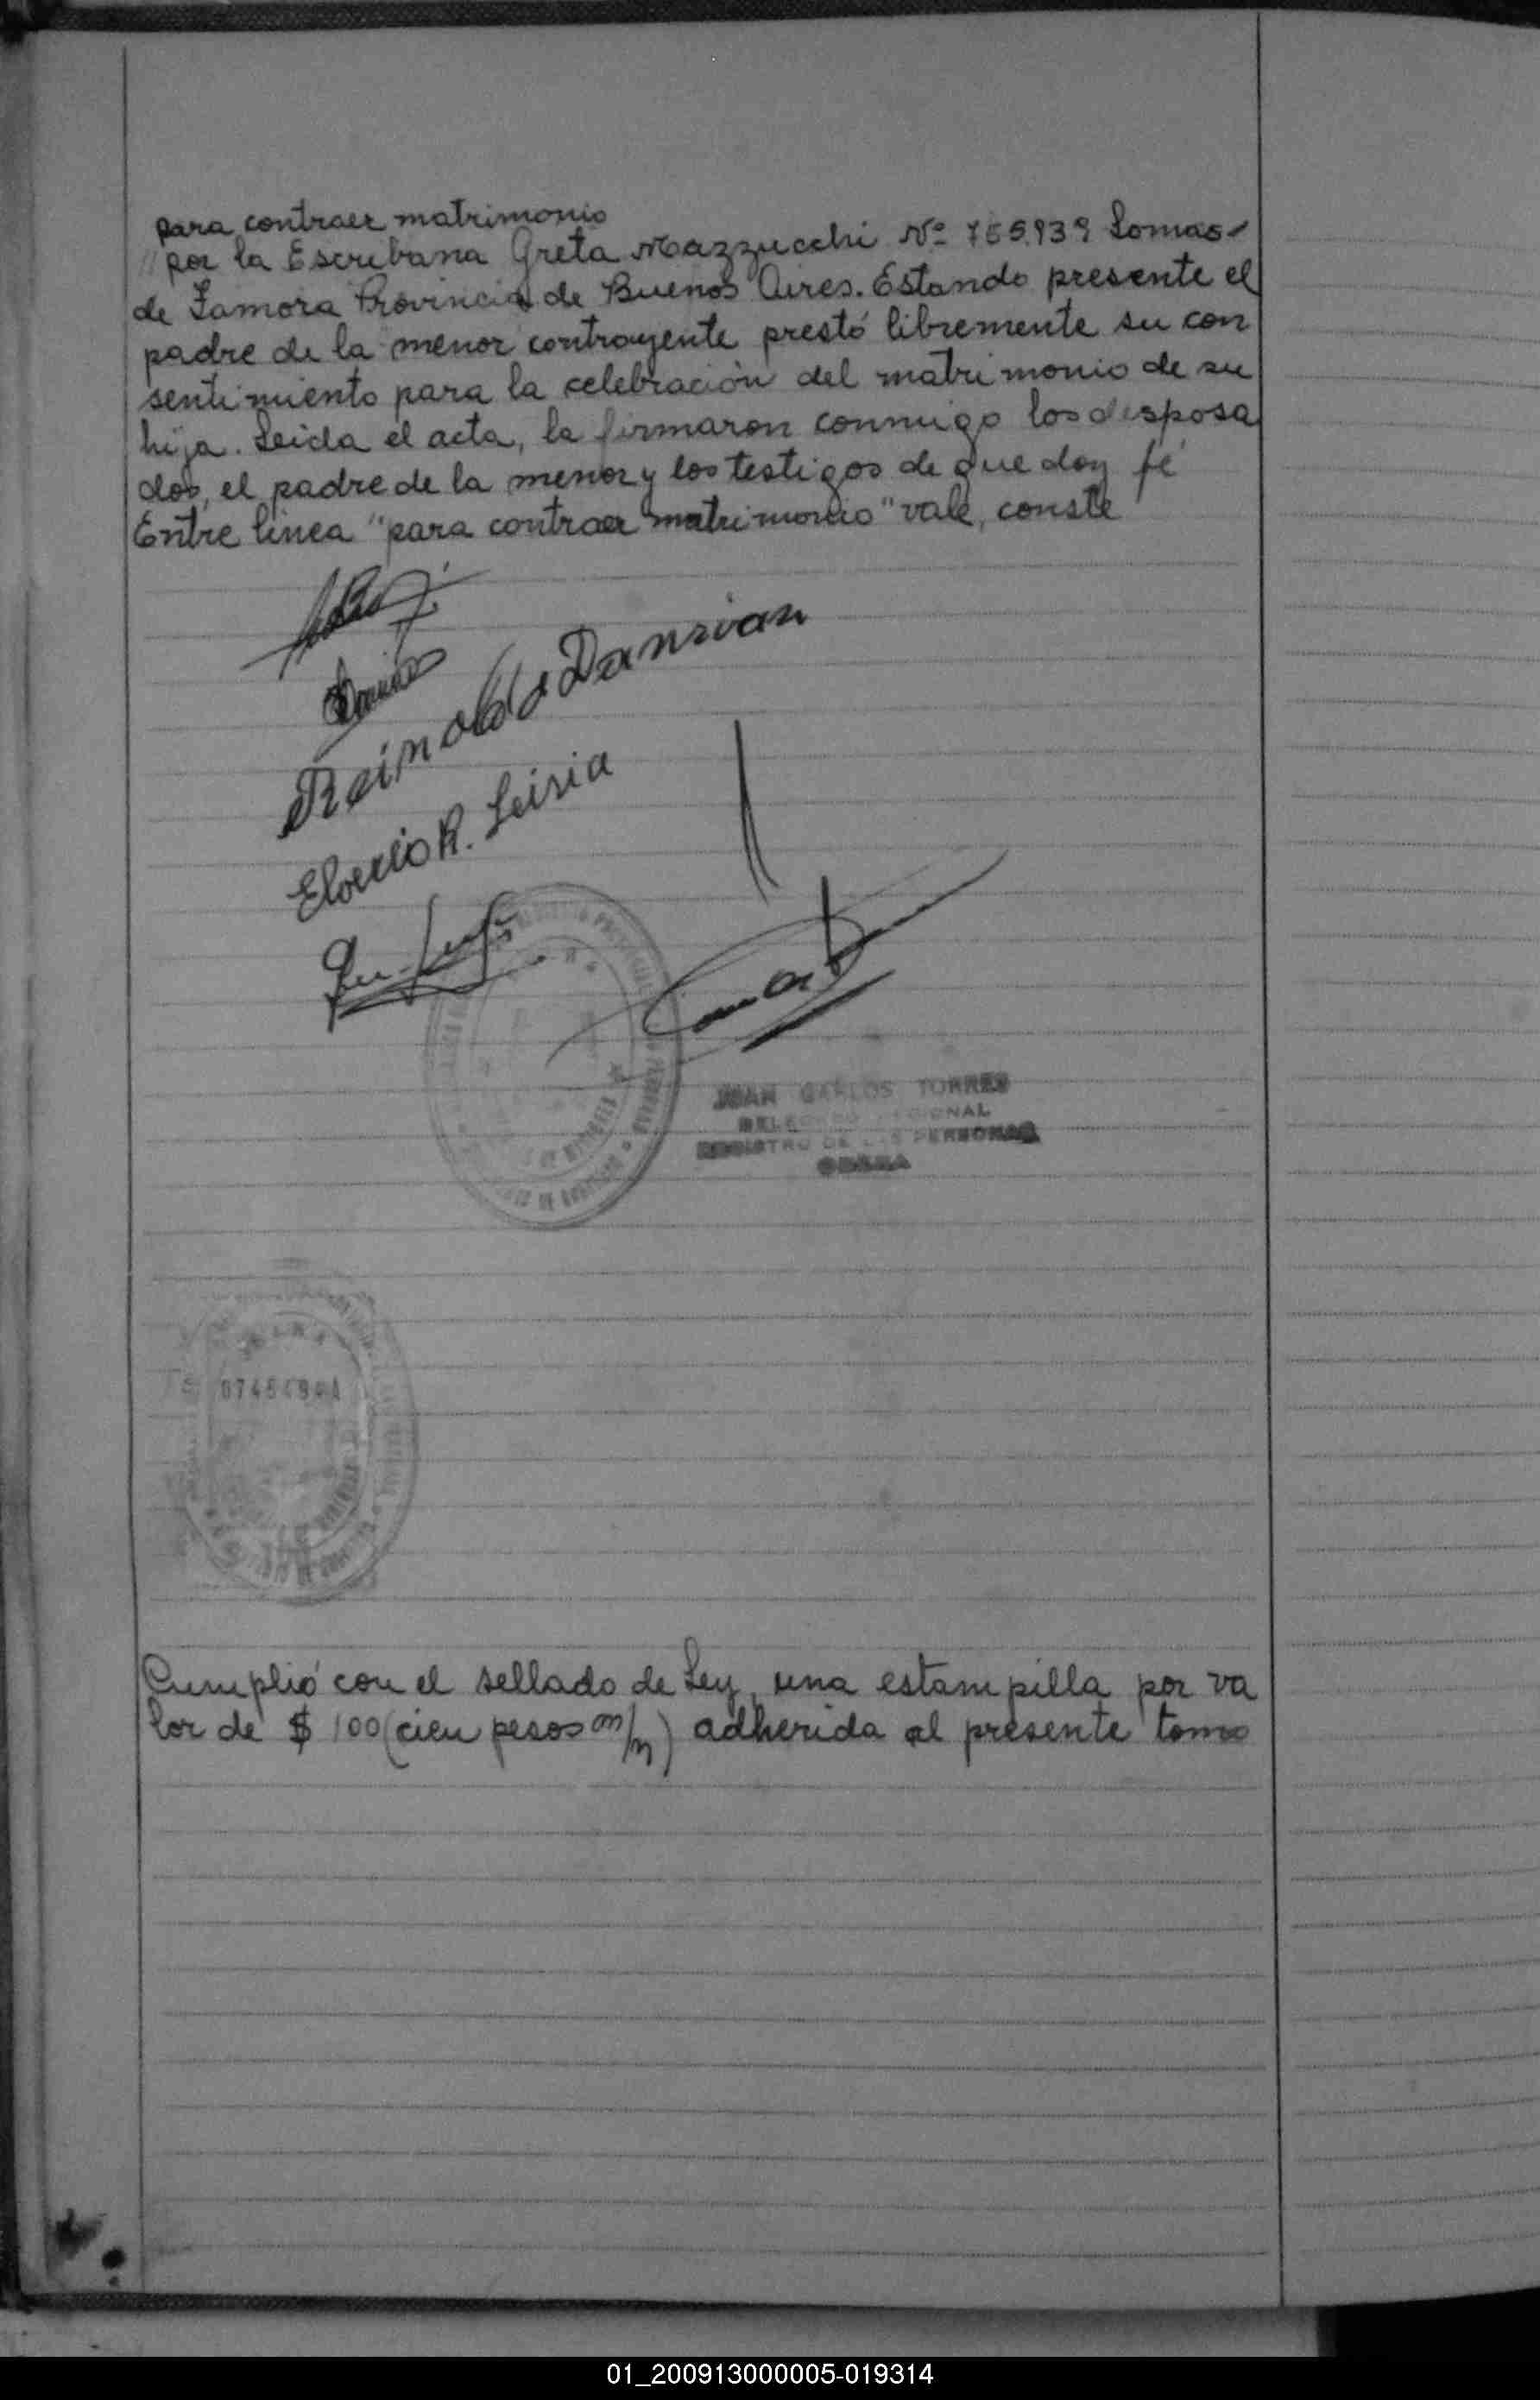 para contraer matrimonio
" por la Escribana Greta Mazzucchi Nº 755.939 Lomas
de Zamora Provincia de Buenos Aires. Estando presente el
padre de la menor contrayente prestó libremente su con
sentimiento para la celebración del matrimonio de su
hija. Leida el acta, la firmaron conmigo los desposa
dos, el padre de la menor y los testigos de que doy fé
Entre linea "para contraer matrimonio" vale, conste
Reinoldo Dansvan
R. Leiria
JUAN CARLOS TORRES
DELEGADO REGIONAL
REGISTRO DE LAS PERSONAS
OBERA
Cumplió con el sellado de Ley, una estampilla por va
lor de $ 100 (cien pesos m/n) adherida al presente tomo
01_200913000005-019314